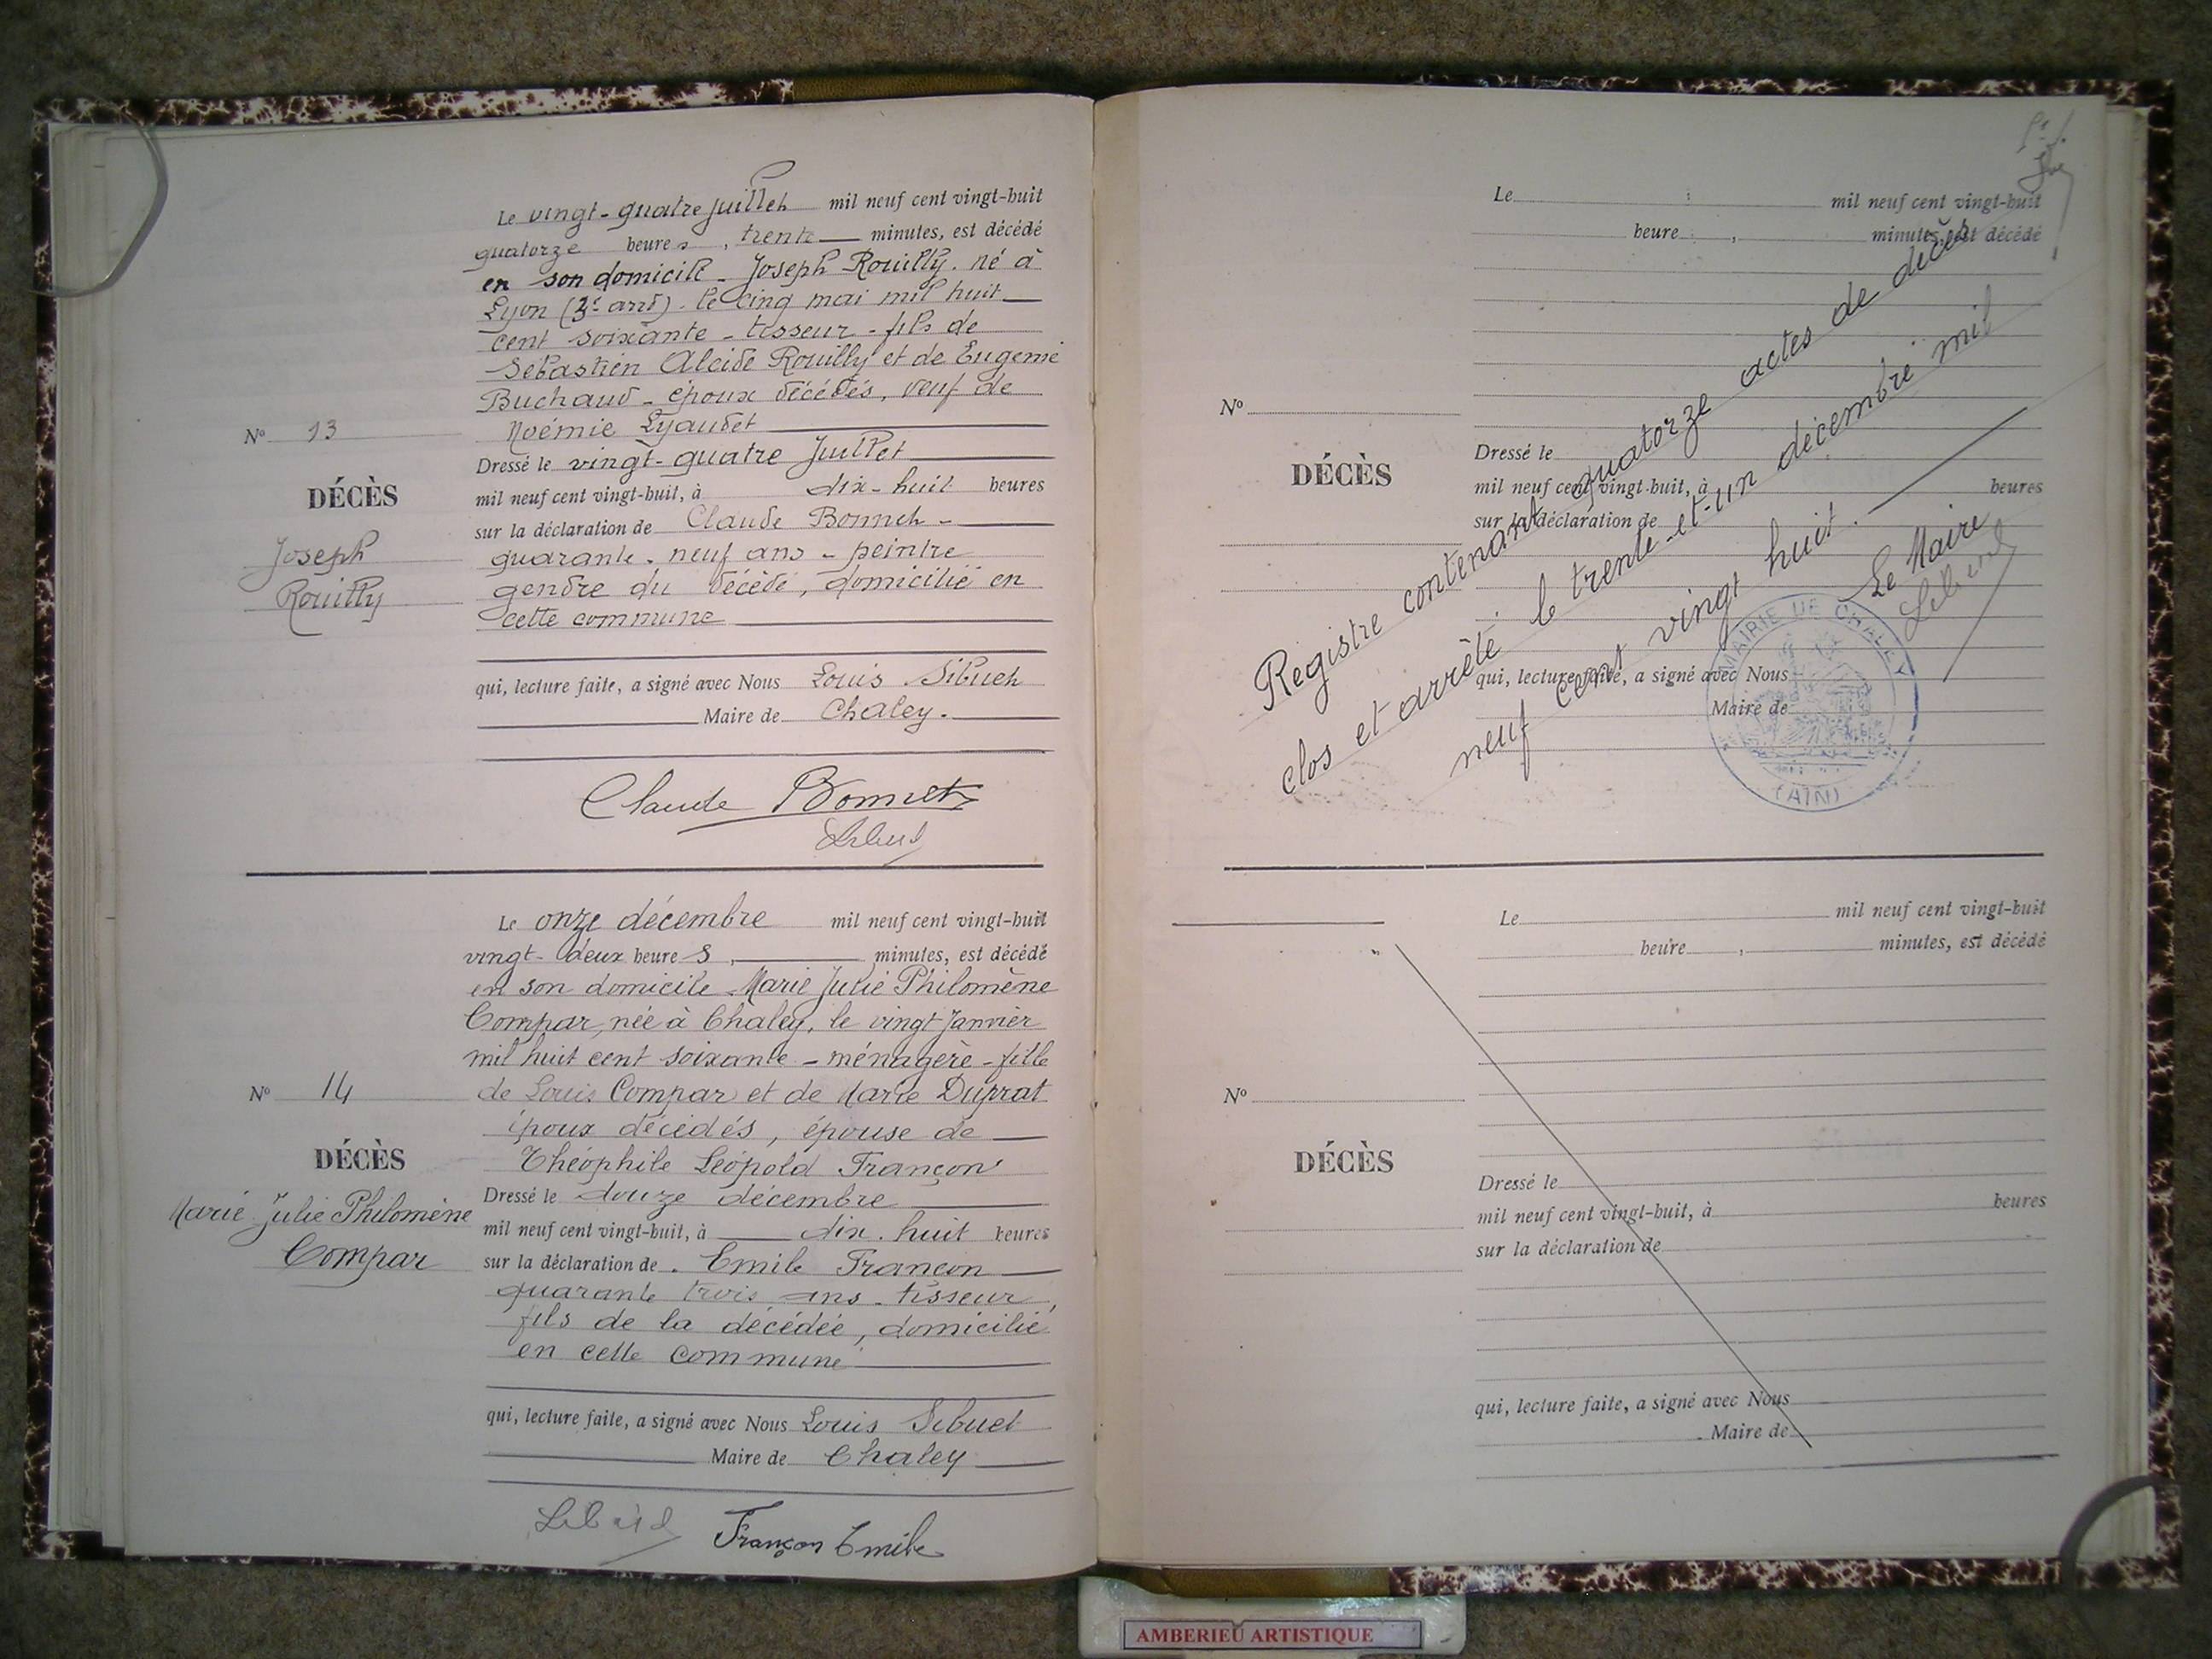 Le vingt-quatre juillet mil neuf cent vingt-huit
quatorze heures, trente minutes, est décédé
en son domicile - Joseph Rouilly. né à
Lyon (3e arrt). le cinq mai mil huit
cent soixante - tisseur - fils de
Sébastien Alcide Rouilly et de Eugenie
Buchaud - époux décédés, veuf de
Noémie Lyaudet
Nº 13
Dressé le vingt-quatre Juillet
DÉCÈS
mil neuf cent vingt-huit, à dix-huit heures
sur la déclaration de Claude Bonnet -
Joseph
Rouilly
quarante-neuf ans - peintre
gendre du décédé, domicilié en
cette commune
qui, lecture faite, a signé avec Nous Louis Sibuet
Maire de Chaley.
Claude Bonnet
Le onze décembre mil neuf cent vingt-huit
vingt-deux heures, minutes, est décédé
en son domicile Marie Julie Philomène
Compar, née à Chaley, le vingt Janvier
mil huit cent soixante - ménagère - fille
Nº 14
de Louis Compar et de Marie Duprat
époux décédés, épouse de
DÉCÈS
Théophile Léopold Françon
Marie Julie Philomène
Compar
Dressé le douze décembre
mil neuf cent vingt-huit, à dix-huit heures
sur la déclaration de Emile Françon
quarante trois ans - tisseur,
fils de la décédée, domicilié
en cette commune
qui, lecture faite, a signé avec Nous Louis Sibuet
Maire de Chaley
Françon Emile
Le mil neuf cent vingt-huit
heure , minutes, est décédé
Nº
DÉCÈS
Dressé le
mil neuf cent vingt-huit, à heures
sur la déclaration de
qui, lecture faite, a signé avec Nous
Maire de
Registre contenant quatorze actes de décès
clos et arrêté le trente-et-un décembre mil
neuf cent vingt huit.
Le Maire
MAIRIE DE CHALEY
(AIN)
Le mil neuf cent vingt-huit
heure , minutes, est décédé
Nº
DÉCÈS
Dressé le
mil neuf cent vingt-huit, à heures
sur la déclaration de
qui, lecture faite, a signé avec Nous
Maire de
AMBERIEU ARTISTIQUE